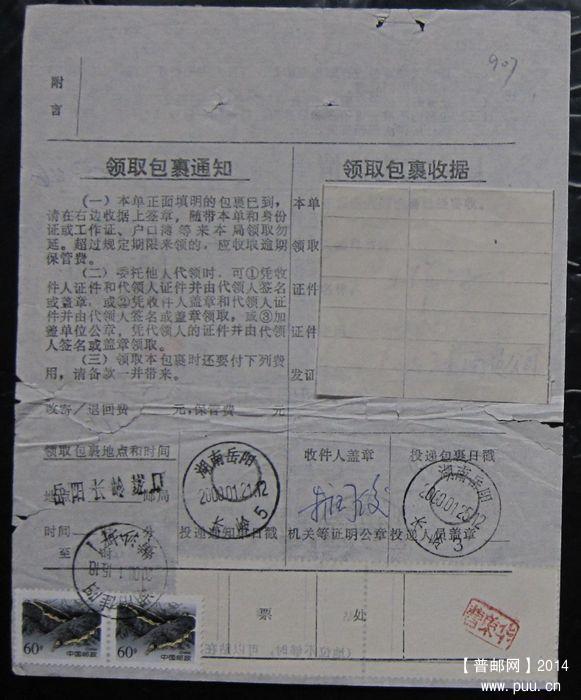 907
附
言
领取包裹通知
(一)本单正面填明的包裹已到,
请在右边收据上签章,随带本单和身份
证或工作证、户口簿等来本局领取勿
延。超过规定期限来领的,应收取逾期
保管费。
(二)委托他人代领时,可①凭收
件人证件和代领人证件并由代领人签名
或盖章,或②凭收件人盖章和代领人证
件并由代领人签名或盖章领取,或③加
盖单位公章,凭代领人的证件并由代领
人签名或盖章领取。
(三)领取本包裹时还要付下列费
用,请备款一并带来。
改寄/退回费 元,保管费 元
领取包裹收据
本单
领取
证件
证件
发证
领取包裹地点和时间
岳阳长岭
邮局
时间
至 时
湖南岳阳
2000.01.21.12
长岭
5
投递通知单日戳
收件人盖章
机关等证明公章
投递包裹日戳
湖南岳阳
2000.01.25.12
长岭
5
投递人员盖章
票 处
60分
中国邮政
60分
中国邮政
【普邮网】2014
www.puu.cn